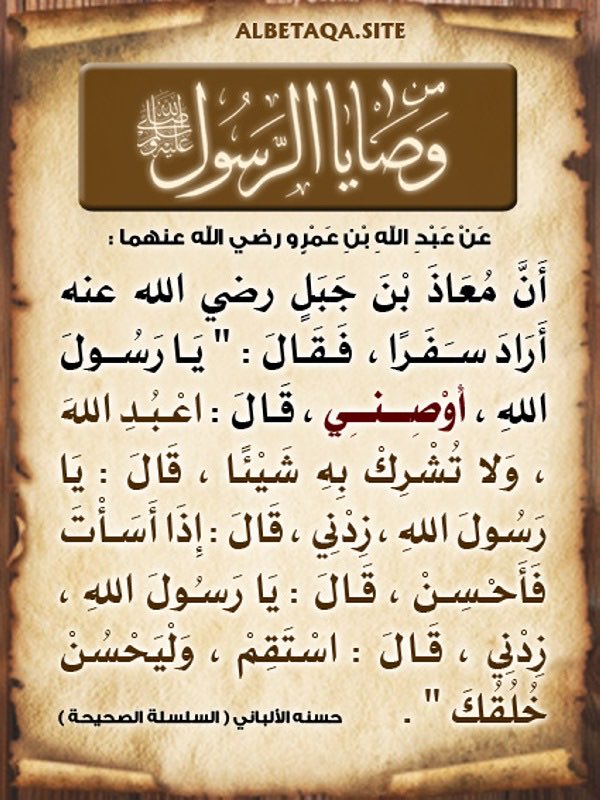 ALBETAQA.SITE
من وصايا الرسول ﷺ
عَنْ عَبْدِ اللهِ بْنِ عَمْرٍو رضي الله عنهما :
أَنَّ مُعَاذَ بْنَ جَبَلٍ رضي الله عنه
أَرَادَ سَـفَـرًا ، فَـقَـالَ : " يَـا رَسُـولَ
اللهِ ، أَوْصِـــنـــِي ، قَـالَ : اعْـبُـدِ اللهَ
، وَلا تُشْرِكْ بِهِ شَيْئًا ، قَالَ : يَا
رَسُولَ اللهِ ، زِدْنِي ، قَالَ : إِذَا أَسَـأْتَ
فَأَحْـسِـنْ ، قَالَ : يَا رَسُولَ اللهِ ،
زِدْنِي ، قَـالَ : اسْـتَـقِـمْ ، وَلْيَحْسُنْ
خُلُقُكَ " .
حسنه الألباني ( السلسلة الصحيحة )